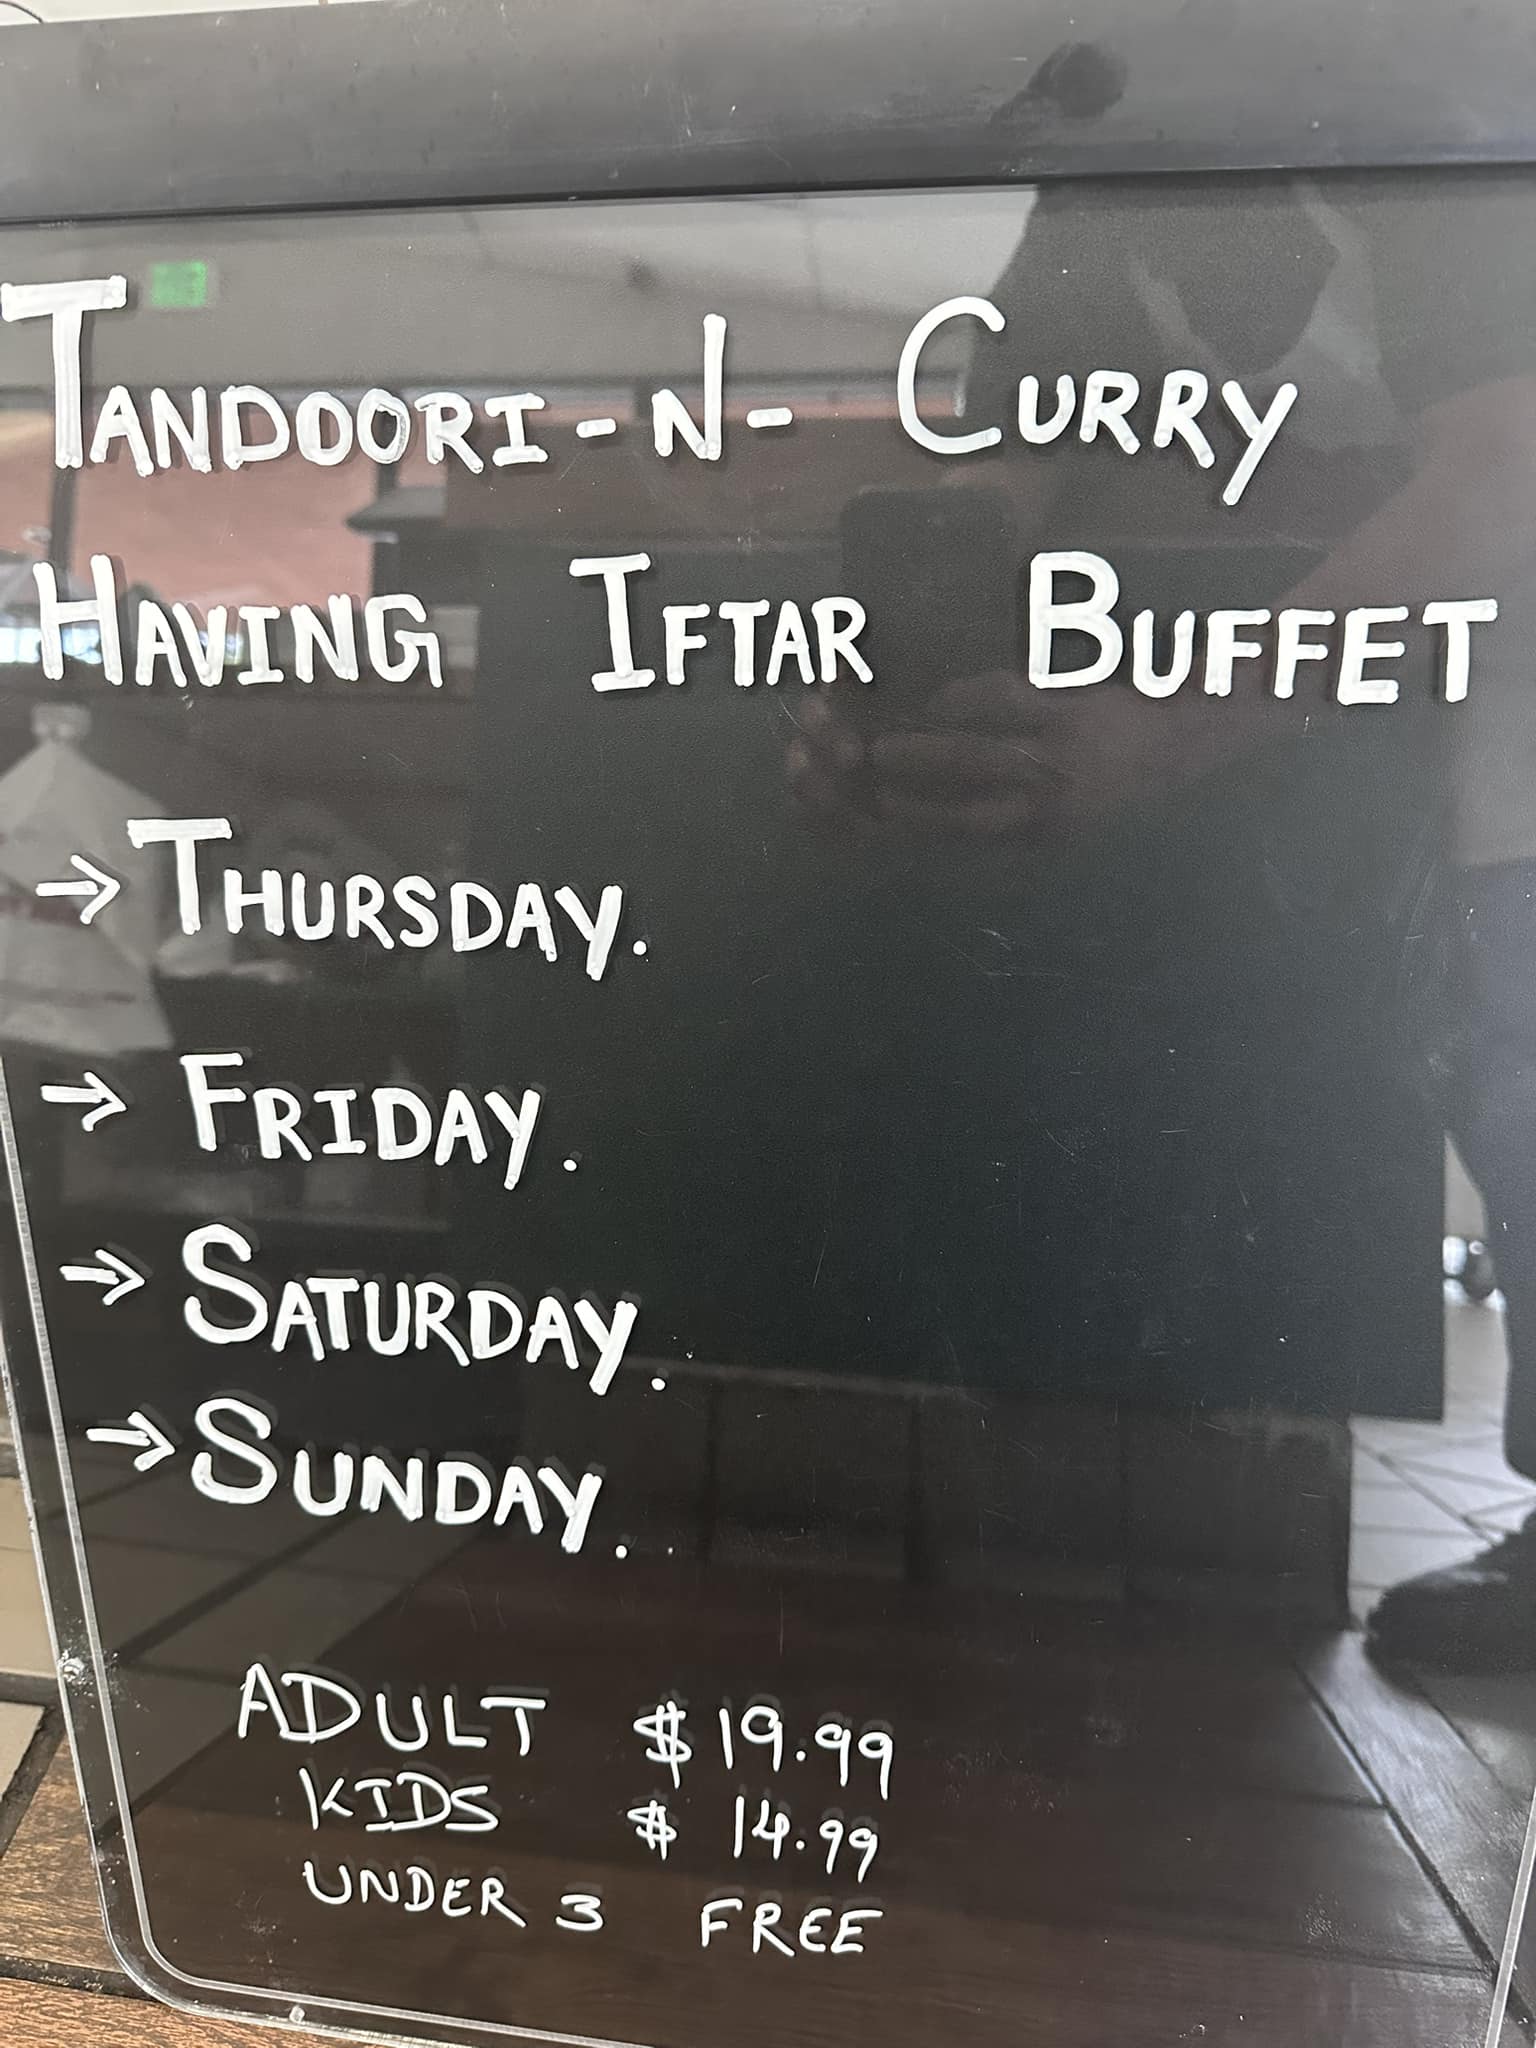 TANDOORI-N-CURRY
HAVING IFTAR BUFFET
→ THURSDAY.
→ FRIDAY.
→ SATURDAY.
→ SUNDAY..
ADULT $19.99
KIDS $ 14.99
UNDER 3 FREE